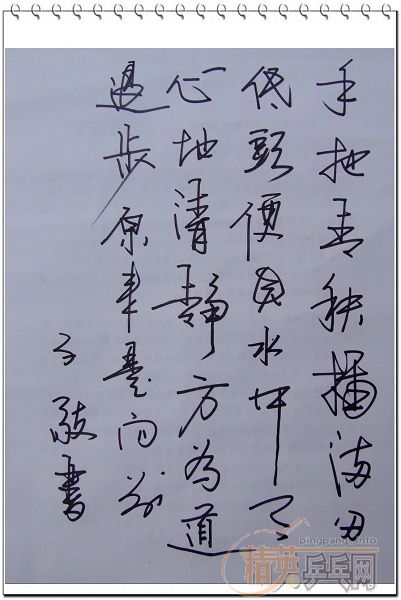 手把青秧插满田
低頭便見水中天
心地清静方为道
退步原来是向前
子敬書
pingpang.info
精英乒乓网